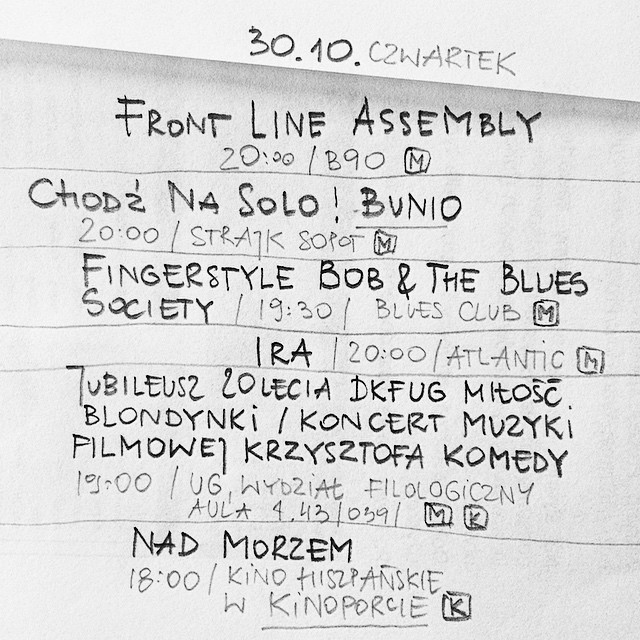 30.10. CZWARTEK
FRONT LINE ASSEMBLY
20:00 / B90 M
CHODŹ NA SOLO! BUNIO
20:00 / STRAJK SOPOT M
FINGERSTYLE BOB & THE BLUES
SOCIETY / 19:30 / BLUES CLUB M
IRA / 20:00 / ATLANTIC M
JUBILEUSZ 20LECIA DKFUG MIŁOŚĆ
BLONDYNKI / KONCERT MUZYKI
FILMOWEJ KRZYSZTOFA KOMEDY
19:00 / UG, WYDZIAŁ FILOLOGICZNY
AULA 1.43/039/ M K
NAD MORZEM
18:00 / KINO HISZPAŃSKIE
W KINOPORCIE K